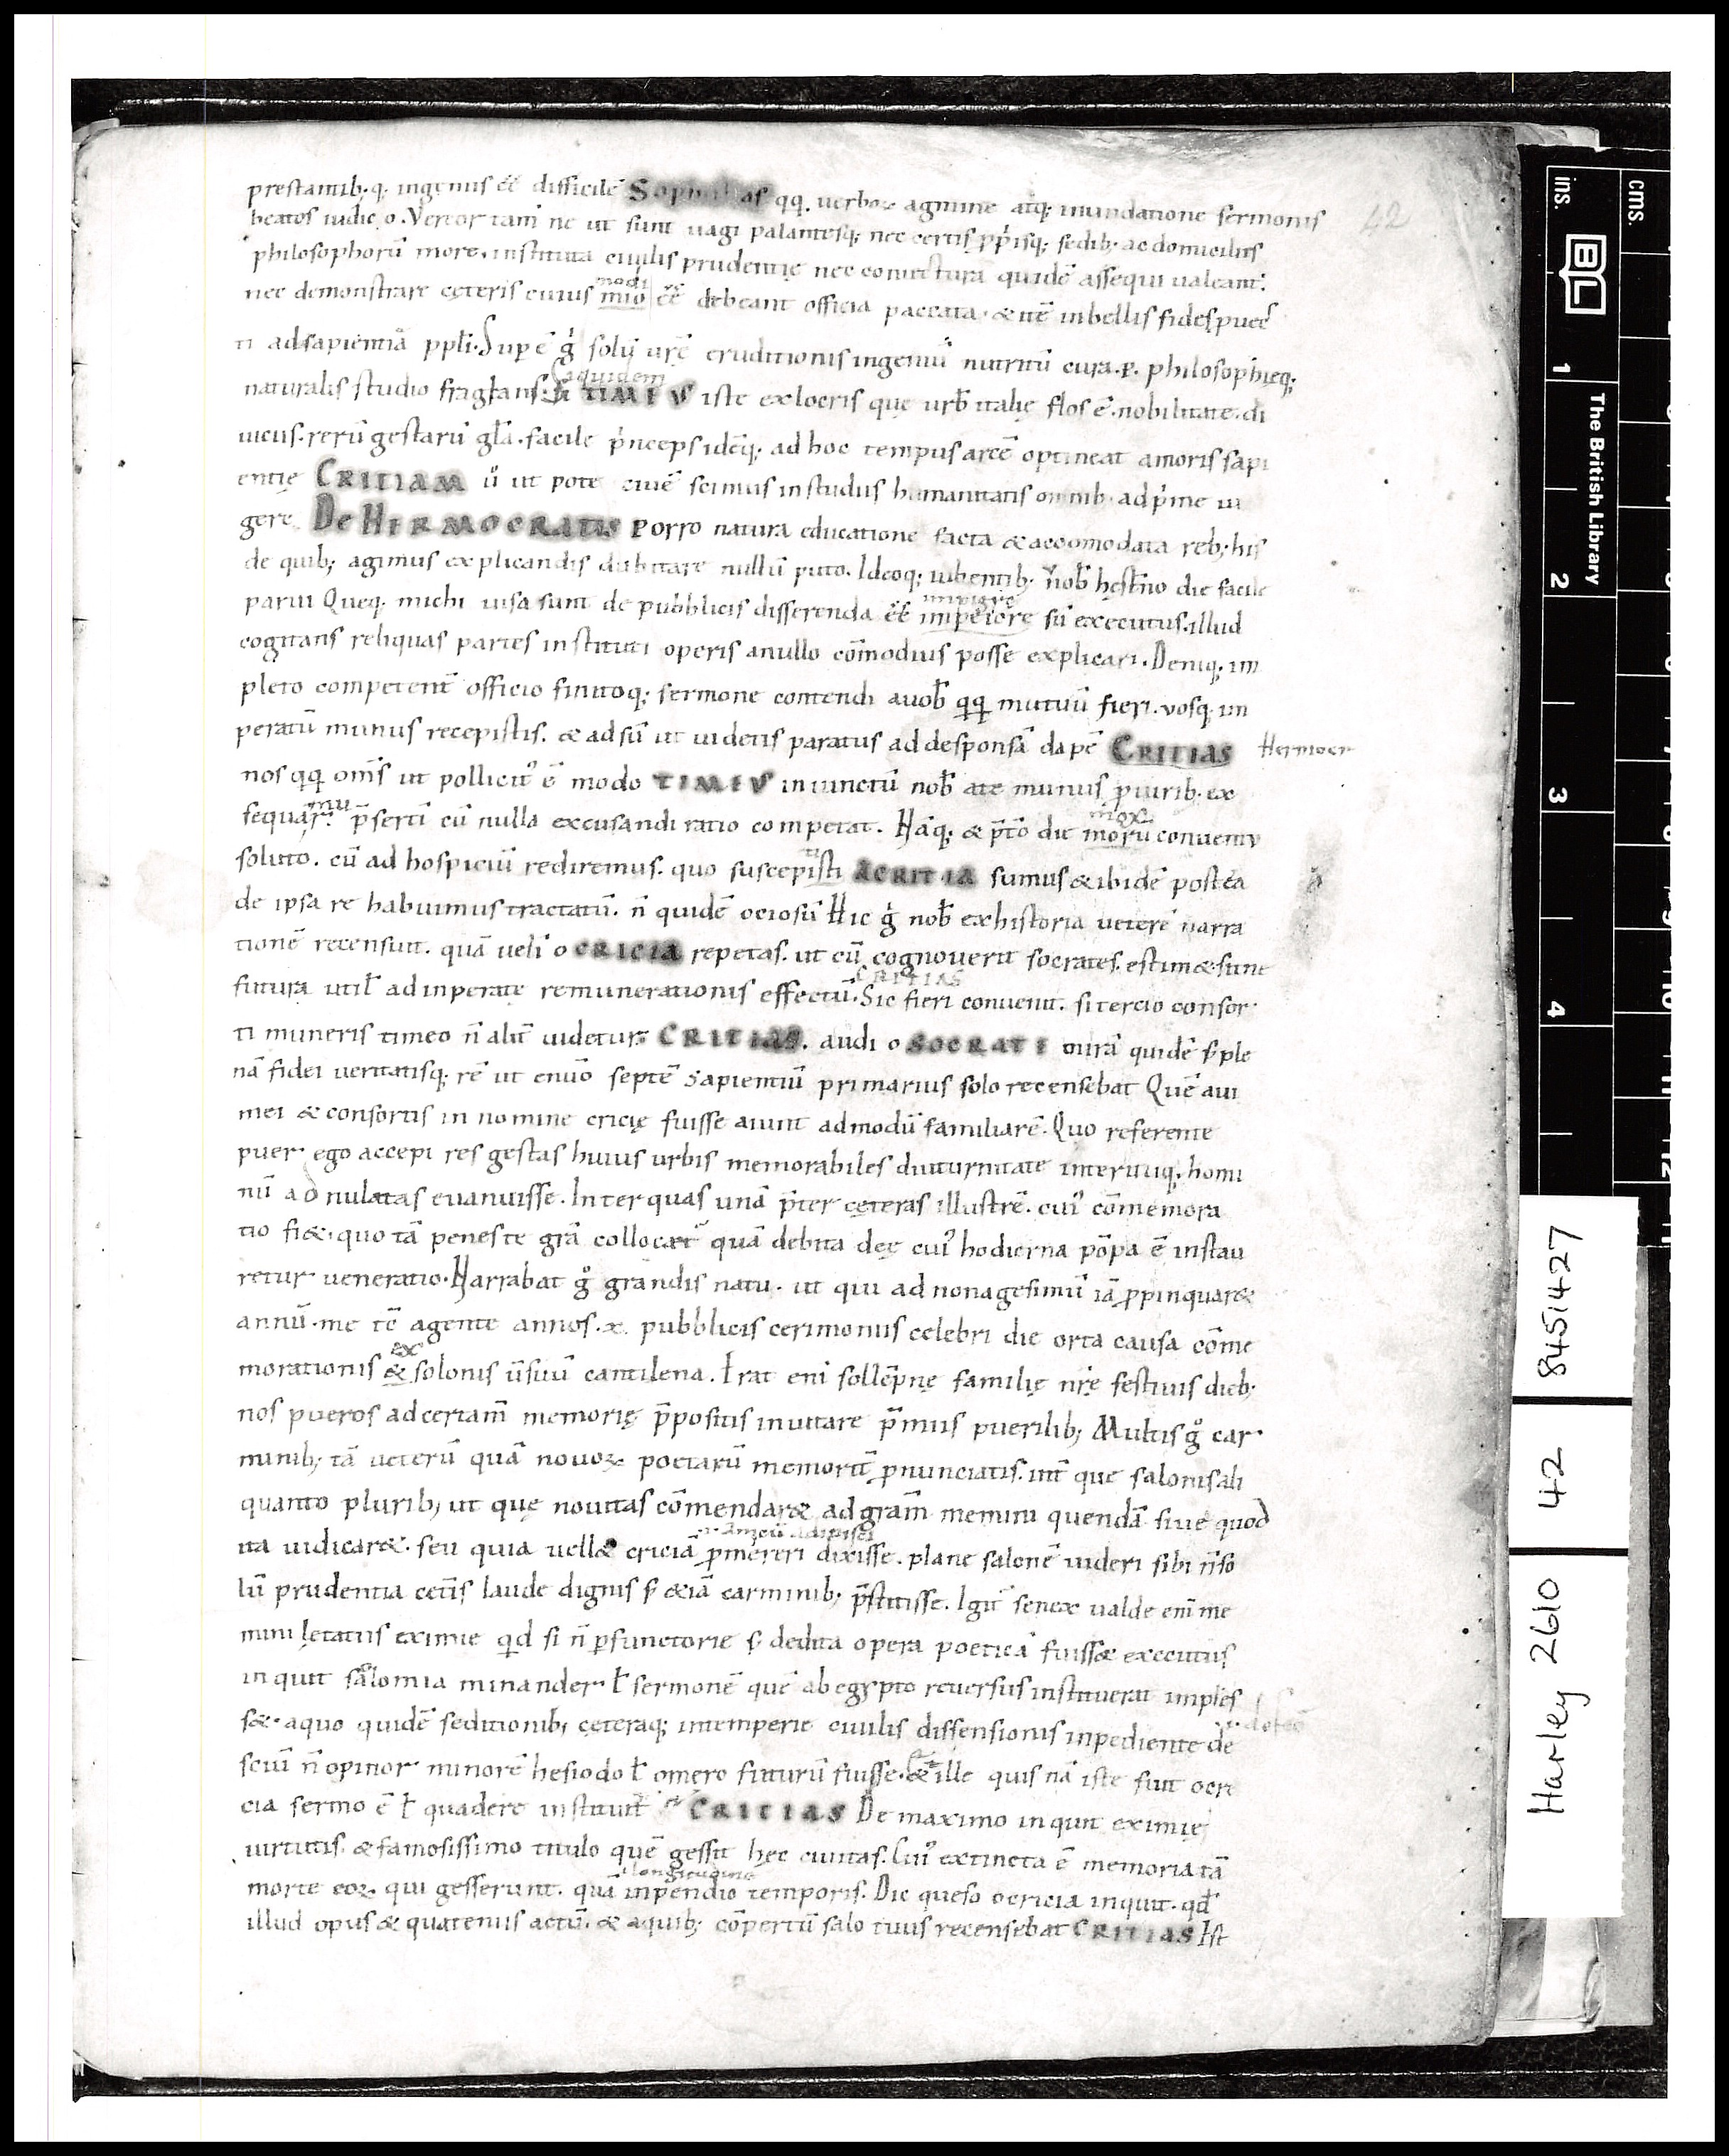 prestantib; q; ingeniis eē difficile Sophistas qq. uerboꝝ agmine atq; inundatione sermonis
beatos iudic o. Vereor tam̄ ne ut sunt uagi palantesq; nec certis p̄priisq; sedib; ac domiciliis
philosophorū more. instituta ciuilis prudentię nec coniectura quidē assequi ualeant.
modi
nec demonstrare cęteris cuius mio eē debeant officia paccata. & itē in bellis fides
ti ad sapientiā ppli. Sup ē g̊ solū urē eruditionis ingeniū nutritū cura. philosophieq;
aquidem
naturalis studio fraglans. TIMEVS iste ex locris que urb̄ italię flos ē. nobilitate. di
uicus. rerū gestarū gl̄a. facile p̄nceps idēq; ad hoc tempus arcē optineat amoris sapi
entię CRITIAM ū ut pote ciuē scimus in studiis humanitatis omnib. adp̄me ui
gere DE HERMOCRATIS porro natura educatione facta & accomodata reb; his
de quib; agimus explicandis dubitare nullū puto. Idcoq; iubentib; nob̄ hęstno die facile
parui Queq. michi uisa sunt de pubblicis disserenda eē impeiore sū executus. illud
impigre
cogitans reliquas partes instituti operis anullo cōmodius posse explicari. Deniq; im
pleto competent̄ officio finitoq; sermone contendi auob̄ qq mutuū fieri. vosq; im
peratū munus recepistis. & adsū ut uidetis paratus ad desponsā dapē CRITIAS Hermocr
nos qq om̄s ut pollicit᾽ ē modo TIMEVS iniunctū nob̄ ate munus p uirib. ex
mu
sequar. p̄serti cū nulla excusandi ratio competat. Naq; & p̄t̄o die moru conuentu
mox
soluto. cū ad hospiciū rediremus. quo suscepisti ACRITIA sumus & ibidē postea
de ipsa re habuimus tractatū. n̄ quidē ociosū Hic g̊ nob̄ ex historia uetere narra
tionē recensuit. quā ueli o CRICIA repetas. ut cū cognouerit socrates. estim& sitne
futura util̄ ad inperatę remunerationis effectū. Sic fieri conuenit. si tercio consor
CRITIAS
ti muneris timeo n̄ alit̄ uidetur. CRITIAS. audi o SOCRATE mirā quidē s; ple
nā fidei ueritatisq; rē ut enuō septē sapientiū primarius solo recensebat Quē aui
mei & consortis in nomine cricię fuisse aiunt admodū familiarē. Quo referente
puer ego accepi res gestas huius urbis memorabiles diuturnitate interituq; homi
nū ad nulatas euanuisse. Inter quas unā p̄ter cęteras illustrē. cui᾽ cōmemora
tio fi&. quo tā penes te grā collocar̄ quā debita deę cui᾽ hodierna pōpa ē instau
retur ueneratio. Narrabat g̊ grandis natu. ut qui ad nonagesimū iā ppinquar&
annū. me tē agente annos. x. pubblicis cerimoniis celebri die orta causa cōme
ex
morationis & solonis ūsuū cantilena. Erat eni sollēpne familię nrē festiuis dieb;
nos pueros ad certam̄ memorię p̄positis inuitare p̄miis puerilib; Multis g̊ car
minib; tā ueterū quā nouoꝝ poetarū memorit̄ pnunciatis. int̄ que salonis ali
quanto plurib; ut quę nouitas cōmendar& ad gr̄am memini quendā siue quod
ita iudicar&. seu quia uell& criciā pmereri dixisse. plane salonē uideri sibi n̄ so
lū prudentia cet̄is laude dignis s; &iā carminib; p̄stitisse. Igit̄ senex ualde eni me
mini lętatus eximie qd si n̄ pfunctorie s; dedita opera poeticā fuiss& executus
inquit salomia minander ł sermonē quē ab egypto reuersus instituerat implēs
s&. aquo quidē seditionib; ceteraq; intemperie ciuilis dissensionis inpediente de
sciuī n̄ opinor minorē hesiodo ł omero futurū fuisse. & ille quis nā iste fuit ocri
cia sermo ē ł quadere instituit CRITIAS De maximo inquit eximię
uirtutis. & famosissimo titulo quē gessit hęc ciuitas. Cui᾽ extincta ē memoria tā
longitudine
morte eoꝝ qui gesserunt. quā inpendio temporis. Dic queso ocricia inquit. qd̄
illud opus & quatenus actū. & aquib; cōpertū salo tuus recensebat CRITIAS Est
42
BL
The British Library
ins.
cms.
1
2
3
4
Harley 2610
42
845/427